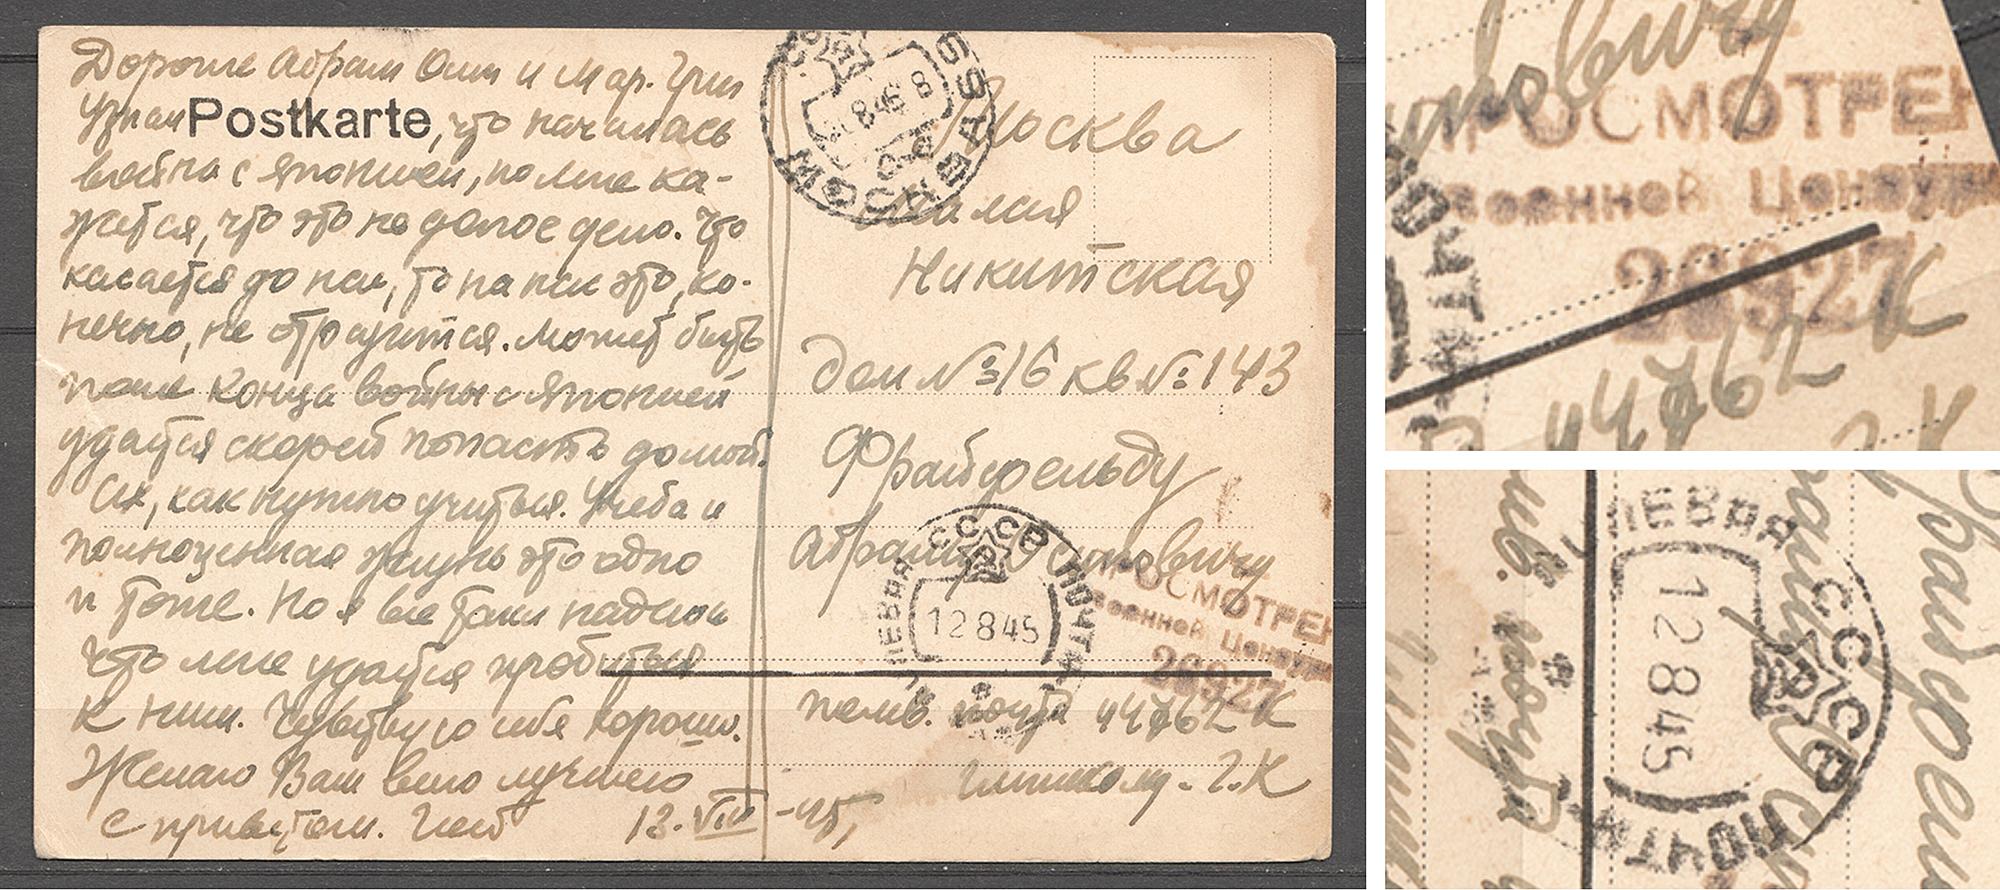 Дорогие Абрам Осип и Мар. Григ
Узнал Postkarte, что началась
война с Японией, но мне ка-
жется, что это не долгое дело. Что
касается до нас, то на нас это, ко-
нечно, не отразится. Может быть
после конца войны с Японией
удастся скорей попасть домой.
Ах, как нужно учиться. Учеба и
полноценная жизнь это одно
и тоже. Но я все таки надеюсь
что мне удастся пробиться
к ним. Чувствую себя хорошо.
Желаю Вам всего лучшего
с приветом.
13.VIII-45,
МОСКВА 69
8 45 8
Москва
Малая
Никитская
дом №16 кв №143
Фрайфельду
Абраму Осиповичу
СССР
ПОЛЕВАЯ ПОЧТА
12 8 45
ПРОСМОТРЕН
Военной Цензур
26927
полев. почта 44762 К
Г.К
ПРОСМОТРЕН
Военной Цензур
26927
ПОЧТА
44762 К
ПОЛЕВАЯ
СССР
ПОЧТА
12 8 45